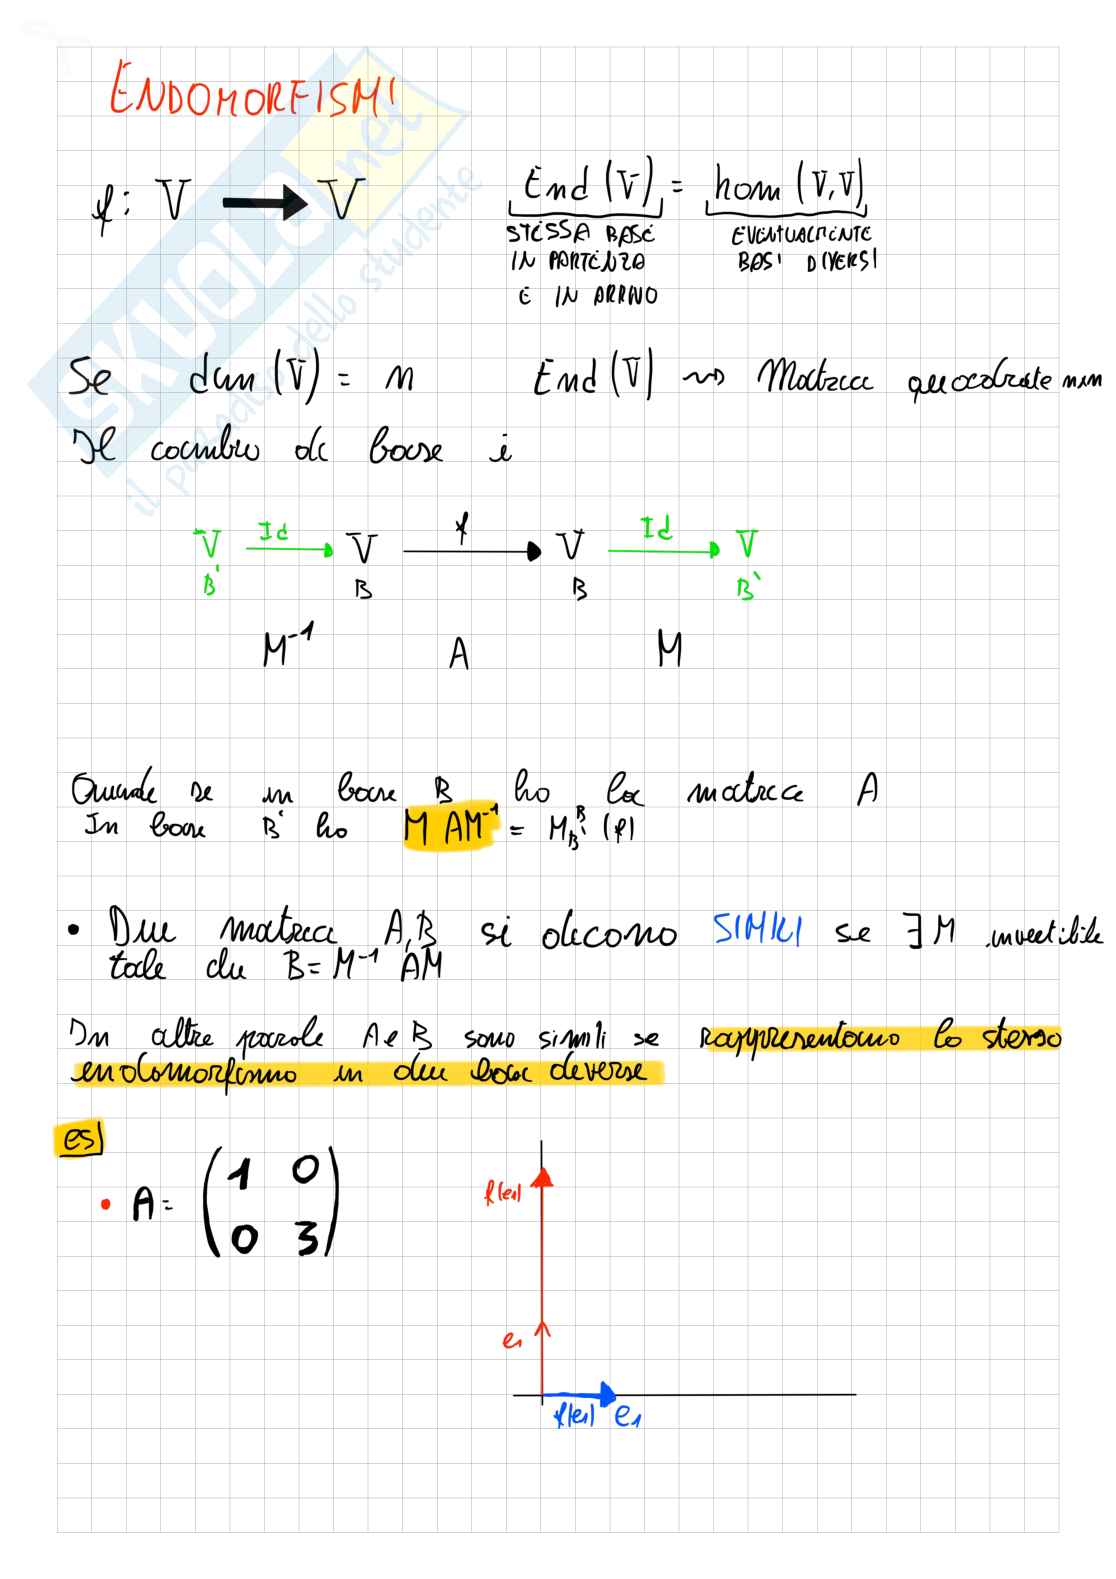 ENDOMORFISMI
f: V → V
End (V) = hom (V,V)
STESSA BASE
IN PARTENZA
E IN ARRIVO
EVENTUALMENTE
BASI DIVERSI
Se dim (V) = n End (V) ⇝ Matrice quadrate nxn
Il cambio di base è
V Id V f V Id V
B' B B B'
M⁻¹ A M
Quindi se in base B ho la matrice A
In base B' ho M AM⁻¹ = M_B'^B' (f)
• Due matrici A,B si dicono SIMILI se ∃ M invertibile
tale che B = M⁻¹ AM
In altre parole A e B sono simili se rappresentano lo stesso
endomorfismo in due basi diverse
es)
• A = (1 0
0 3)
f(e₁)
e₁
f(e₁) e₁
SKUOLA.net
il paradiso dello studente